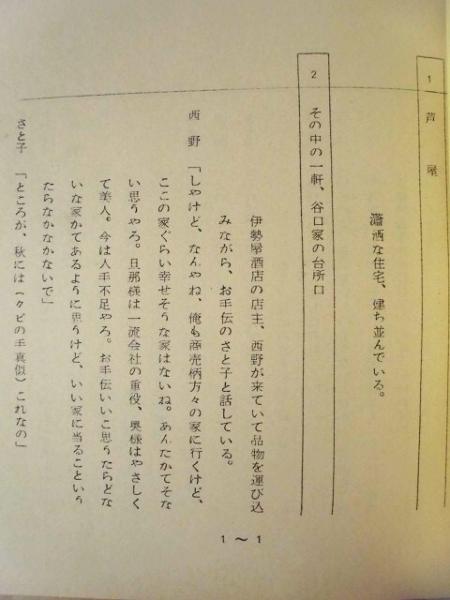 1 芦屋
瀟洒な住宅、建ち並んでいる。
2 その中の一軒、谷口家の台所口
伊勢屋酒店の店主、西野が来ていて品物を運び込
みながら、お手伝のさと子と話している。
西野「しやけど、なんやね、俺も商売柄方々の家に行くけど、
ここの家ぐらい幸せそうな家はないね。あんたかてそな
い思うやろ。旦那様は一流会社の重役、奥様はやさしく
て美人。今は人手不足やろ。お手伝いいこ思うたらどな
いな家かてあるように思うけど、いい家に当るこという
たらなかなかないで」
さと子「ところが、秋には(クビの手真似)これなの」
1〜1